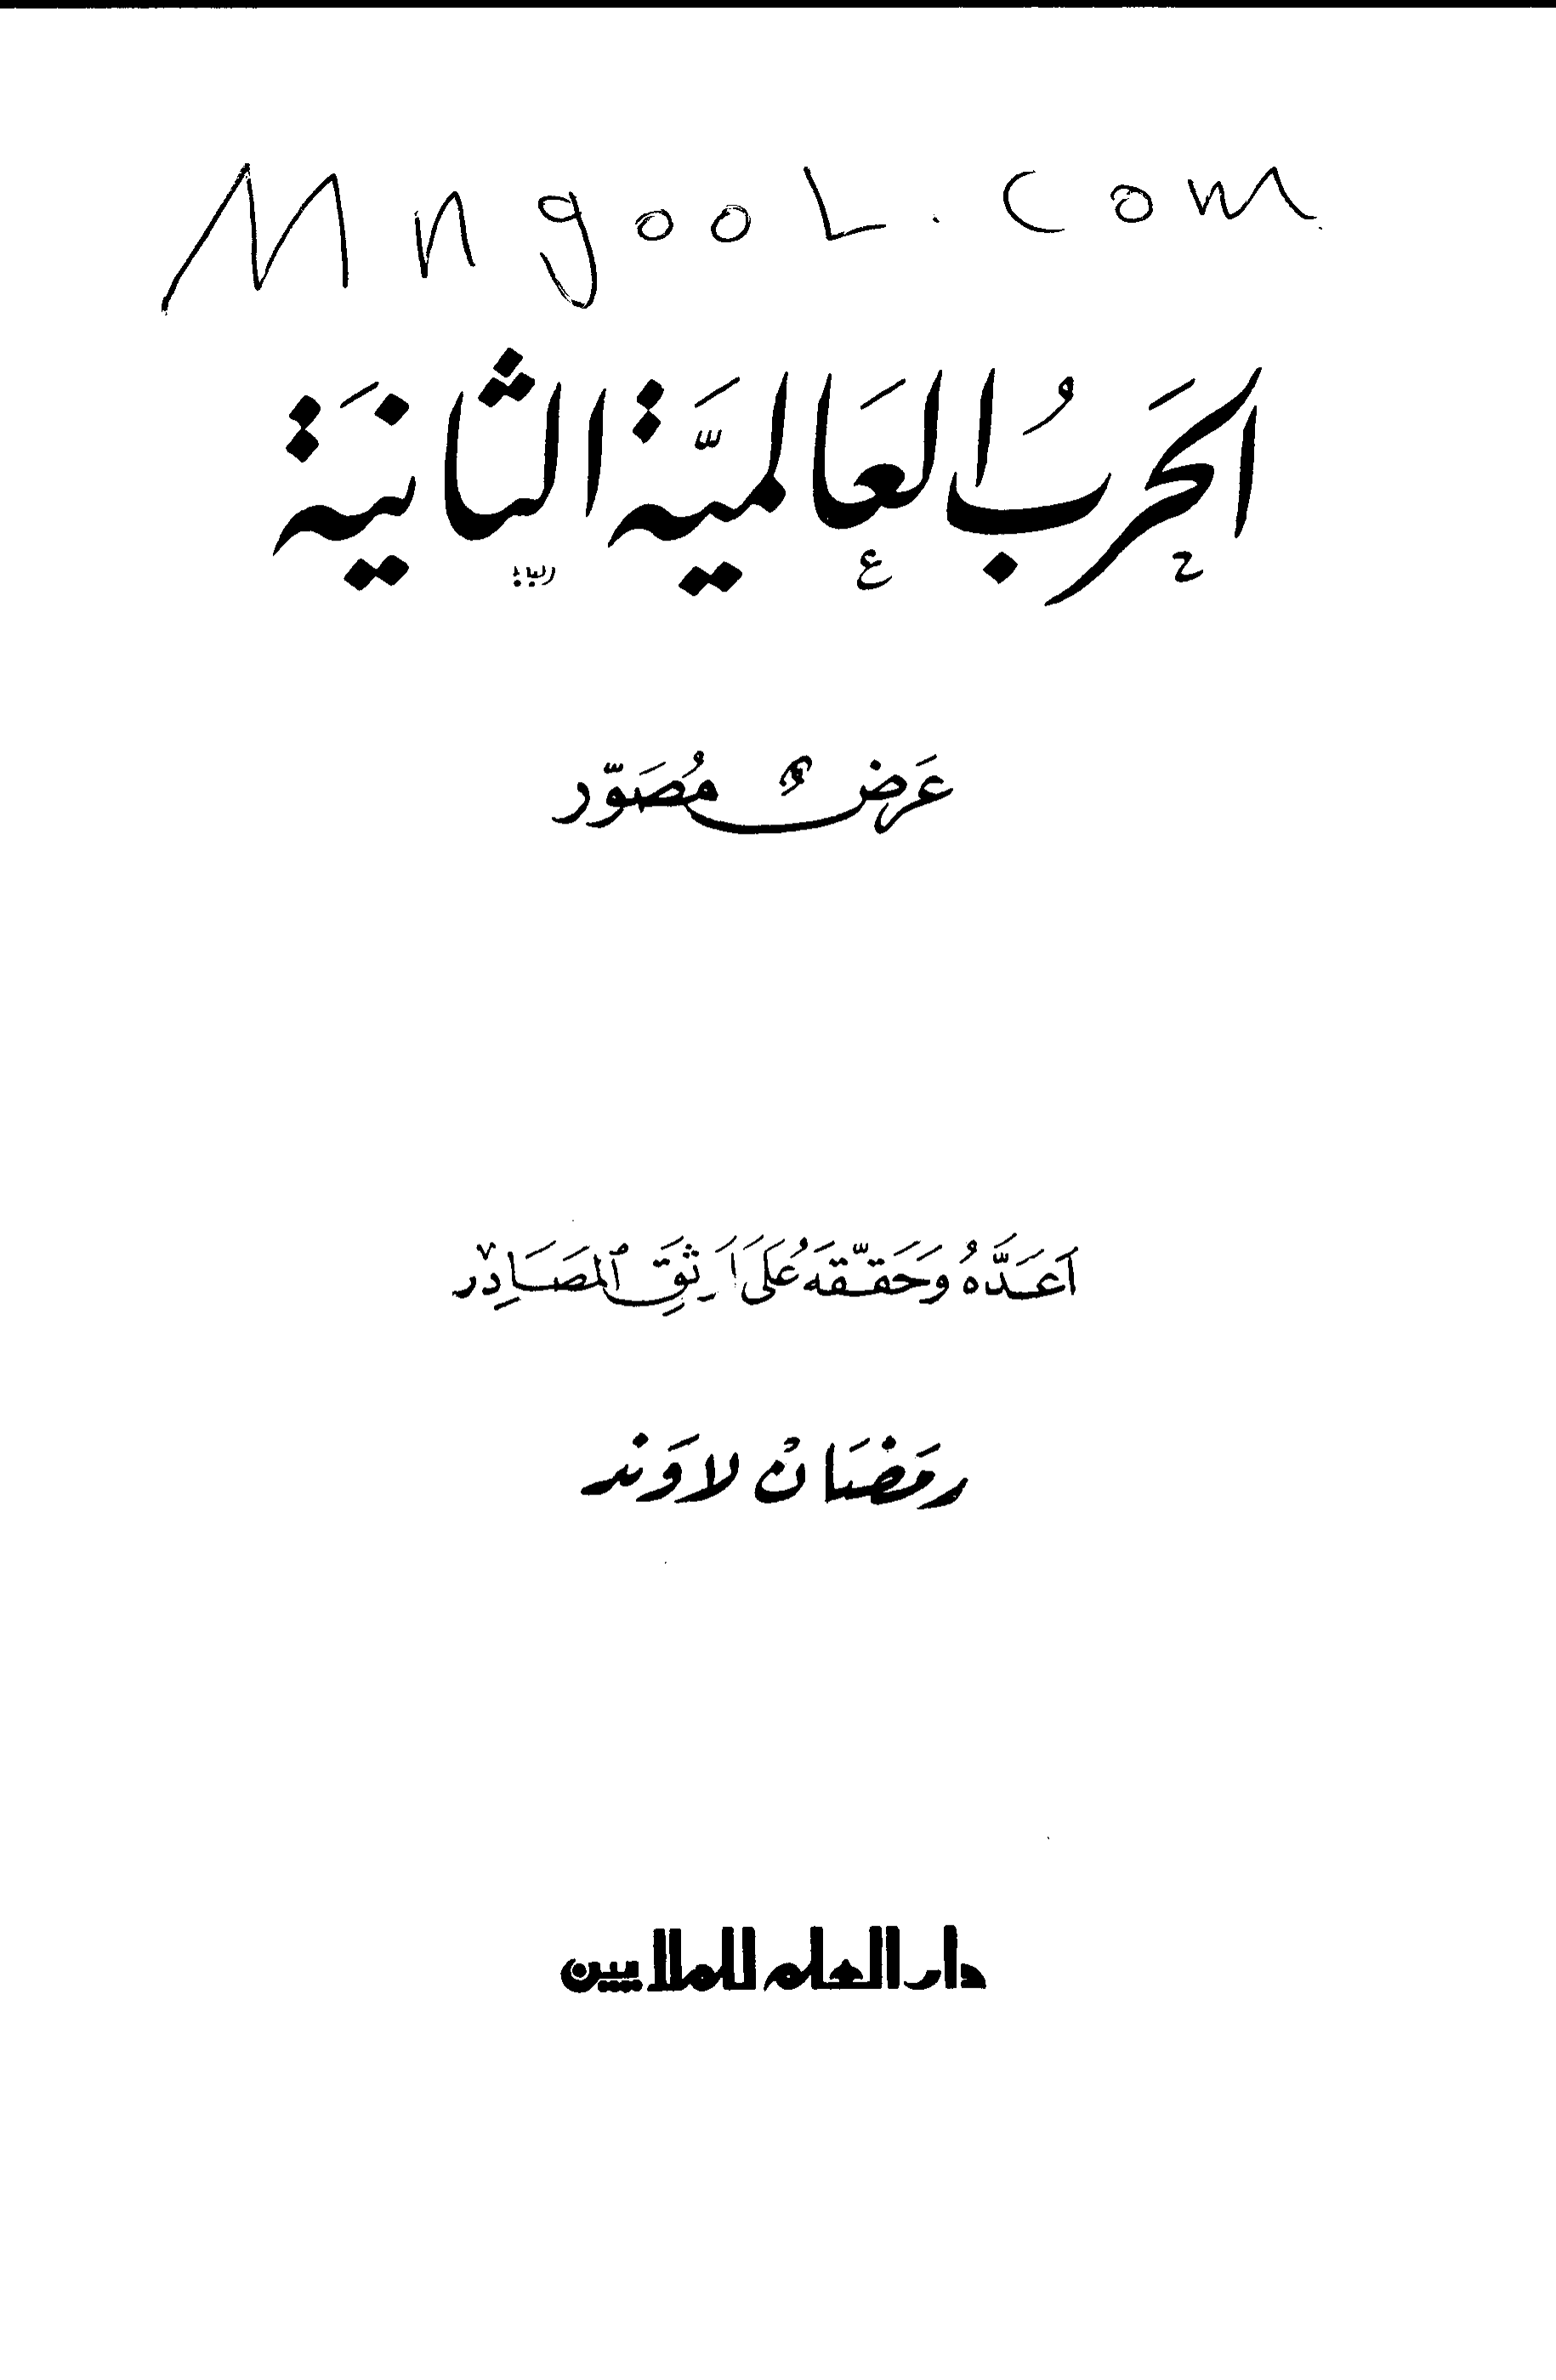 Mngool.com
الحَربُ العَالميَّة الثانيَة
عَرضٌ مُصَوّر
اَعَدَّهُ وَحَقَّقَهُ عَلَى اَوثَقِ المَصَادِر
رمَضَان لاوَند
دار العلم للملايين